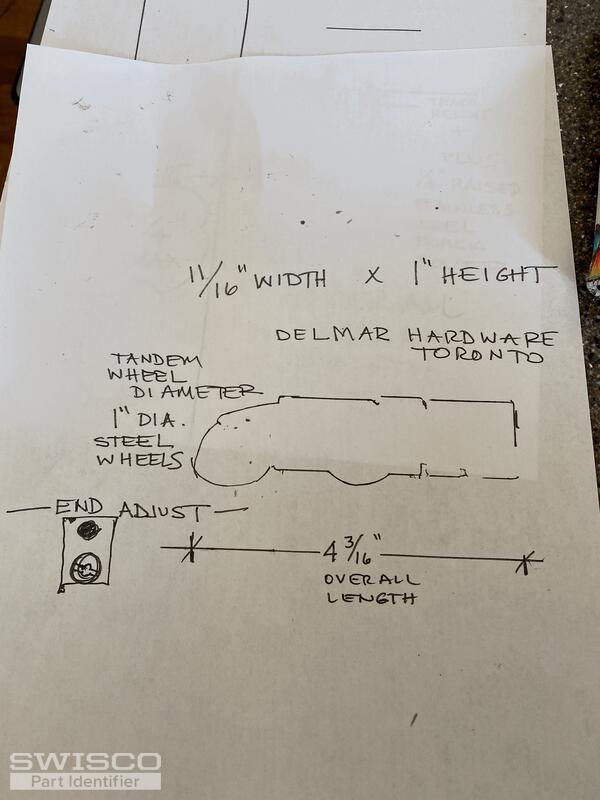 11/16" WIDTH X 1" HEIGHT
DELMAR HARDWARE
TORONTO
TANDEM
WHEEL
DIAMETER
1" DIA.
STEEL
WHEELS
END ADJUST
4 3/16"
OVERALL
LENGTH
SWISCO
Part Identifier